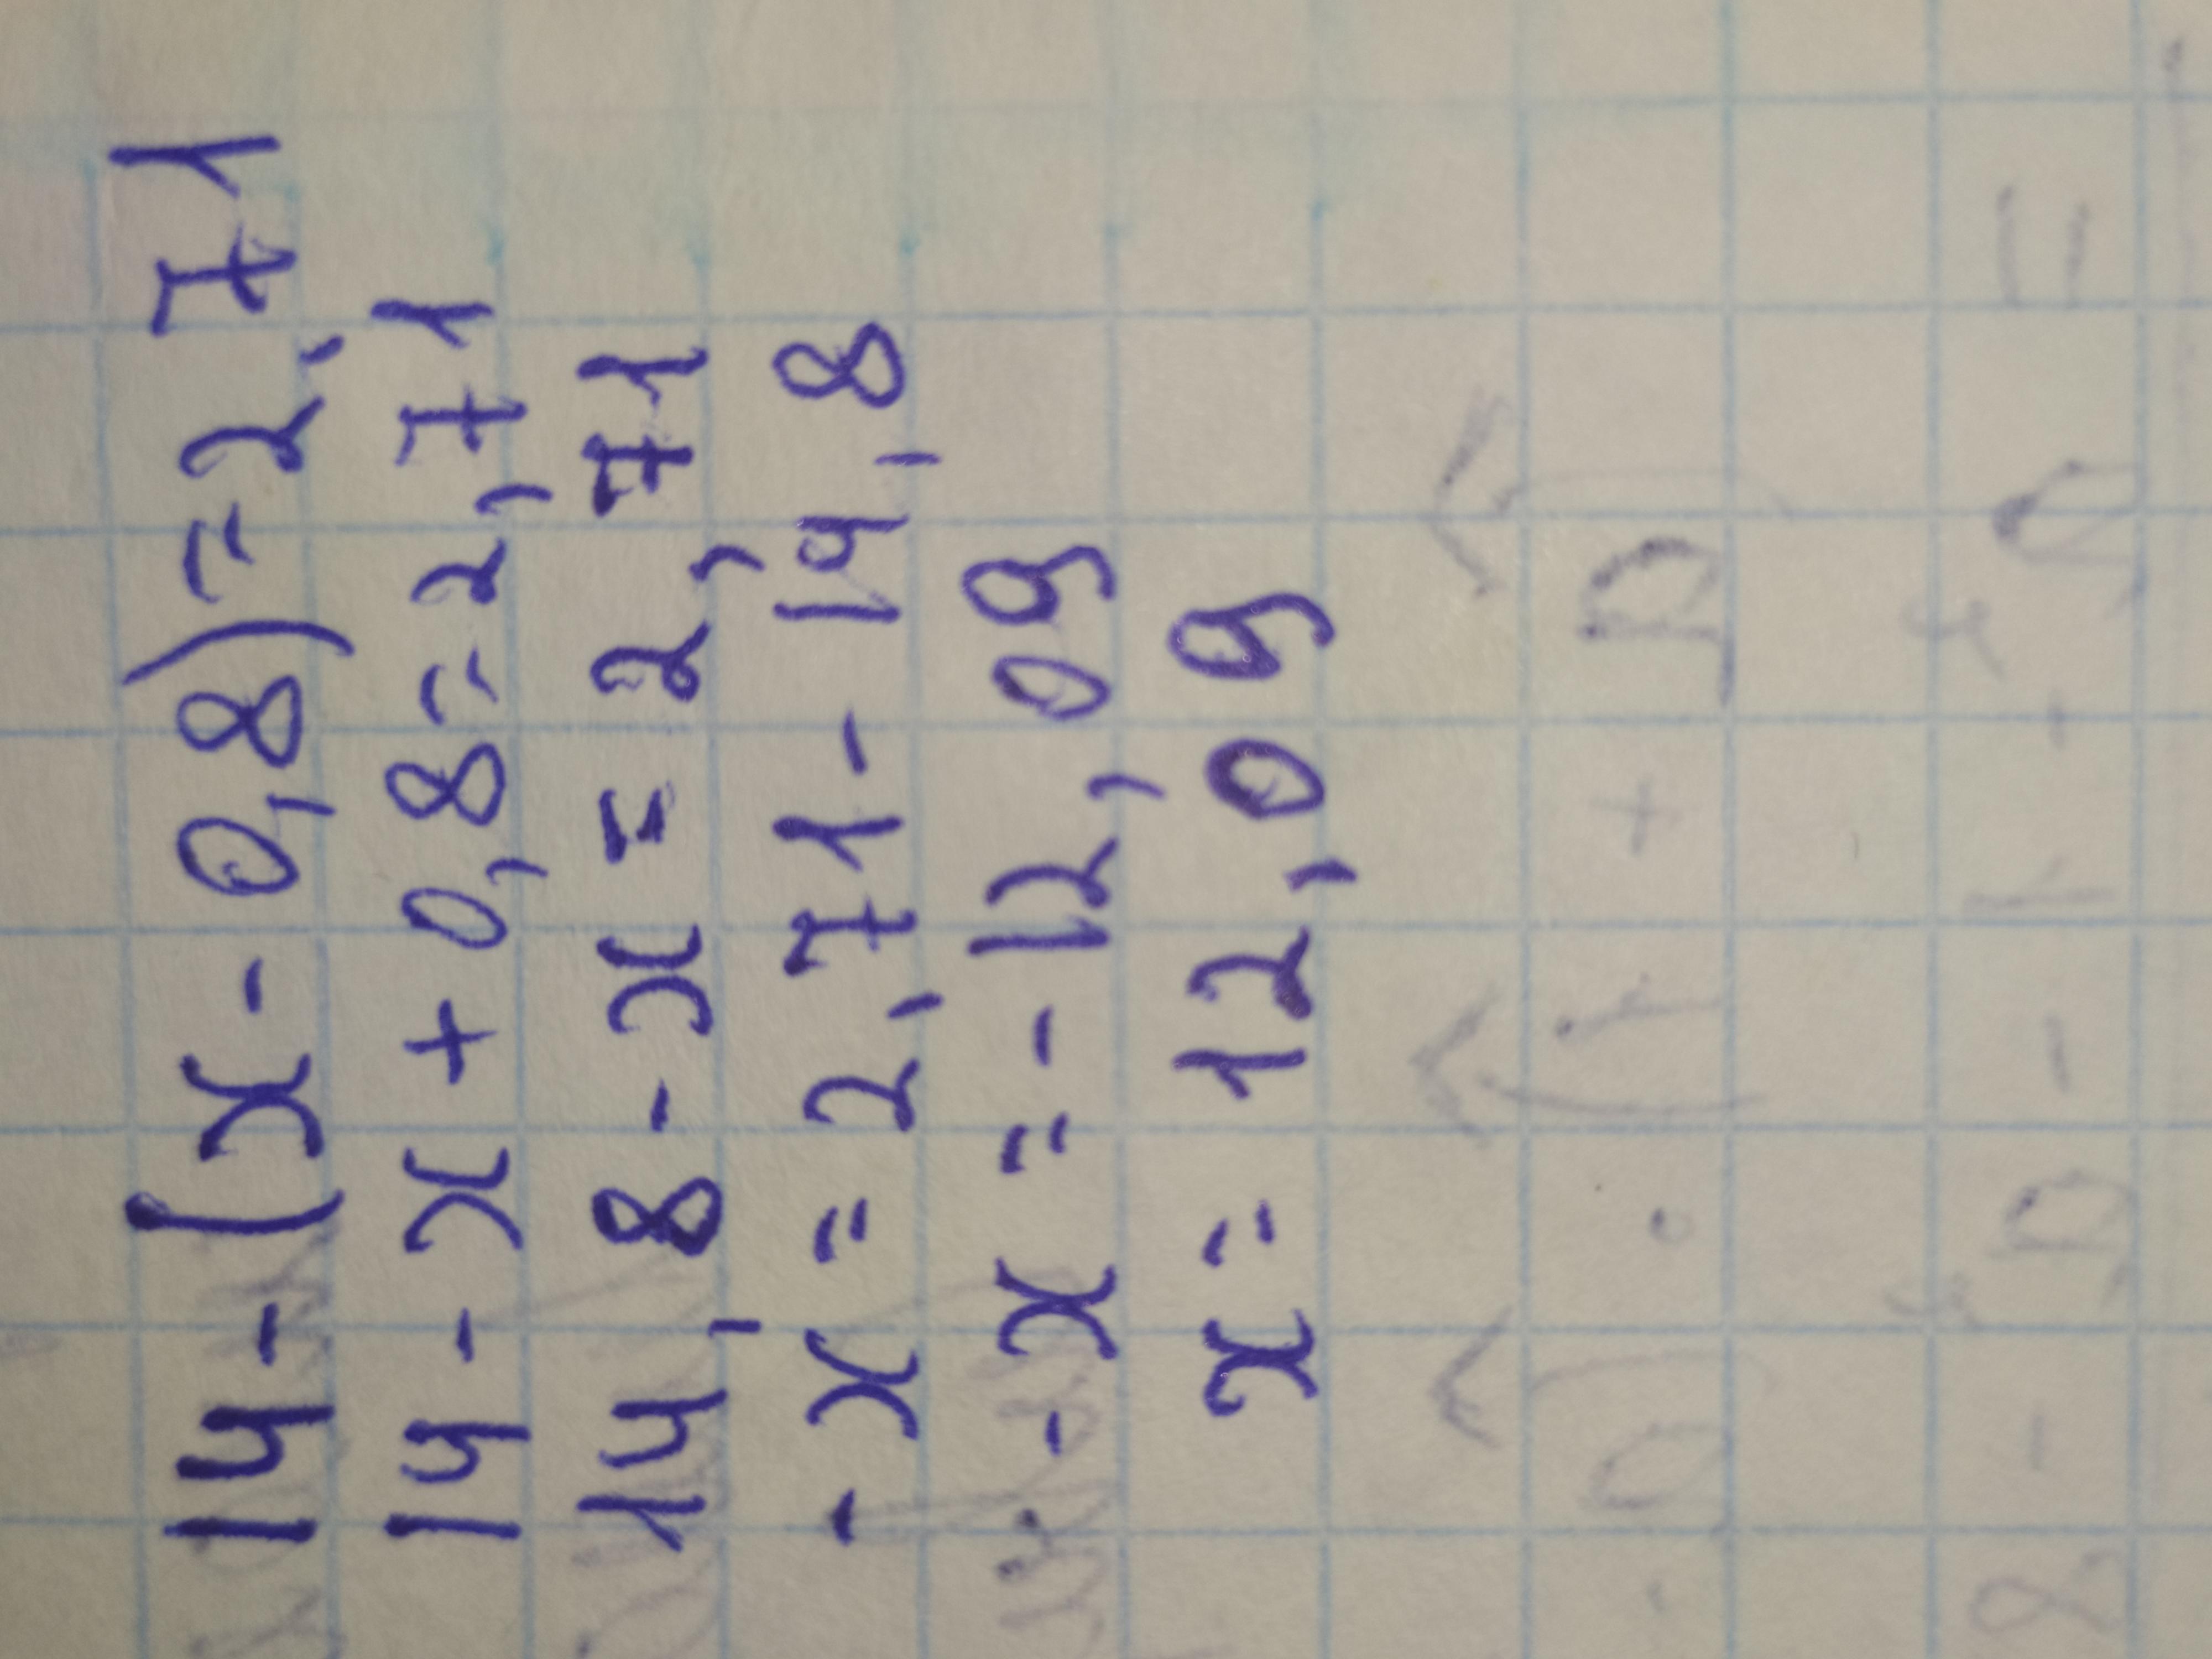 14-(x-0,8)=2,71
14-x+0,8=2,71
14,8-x=2,71
-x=2,71-14,8
-x=-12,09
x=12,09